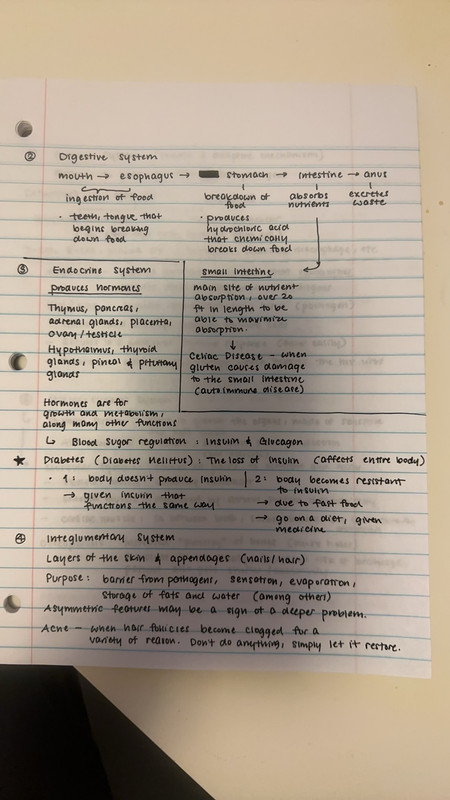 ② Digestive System
mouth → esophagus → stomach → intestine → anus
ingestion of food
• teeth, tongue that
begins breaking
down food
breakdown of
food
• produces
hydrochloric acid
that chemically
breaks down food
absorbs
nutrients
excretes
waste
③ Endocrine System
produces hormones
Thymus, pancreas,
adrenal glands, placenta,
ovary/testicle
Hypothalmus, thyroid
glands, pineal & pituitary
glands
Small Intestine
main site of nutrient
absorption, over 20
ft in length to be
able to maximize
absorption.
↓
Celiac Disease - when
gluten causes damage
to the small intestine
(autoimmune disease)
Hormones are for
growth and metabolism,
along many other functions
↳ Blood Sugar regulation: Insulin & Glucagon
★ Diabetes (Diabetes Mellitus): The loss of insulin (affects entire body)
• 1: body doesn't produce insulin
→ given insulin that
functions the same way
2: body becomes resistant
to insulin
→ due to fast food
→ go on a diet, given
medicine
④ Integlumentary System
Layers of the skin & appendages (nails/hair)
Purpose: barrier from pathogens, sensation, evaporation,
Storage of fats and water (among others)
Asymmetric features may be a sign of a deeper problem.
Acne - when hair follicies become clogged for a
variety of reason. Don't do anything, simply let it restore.